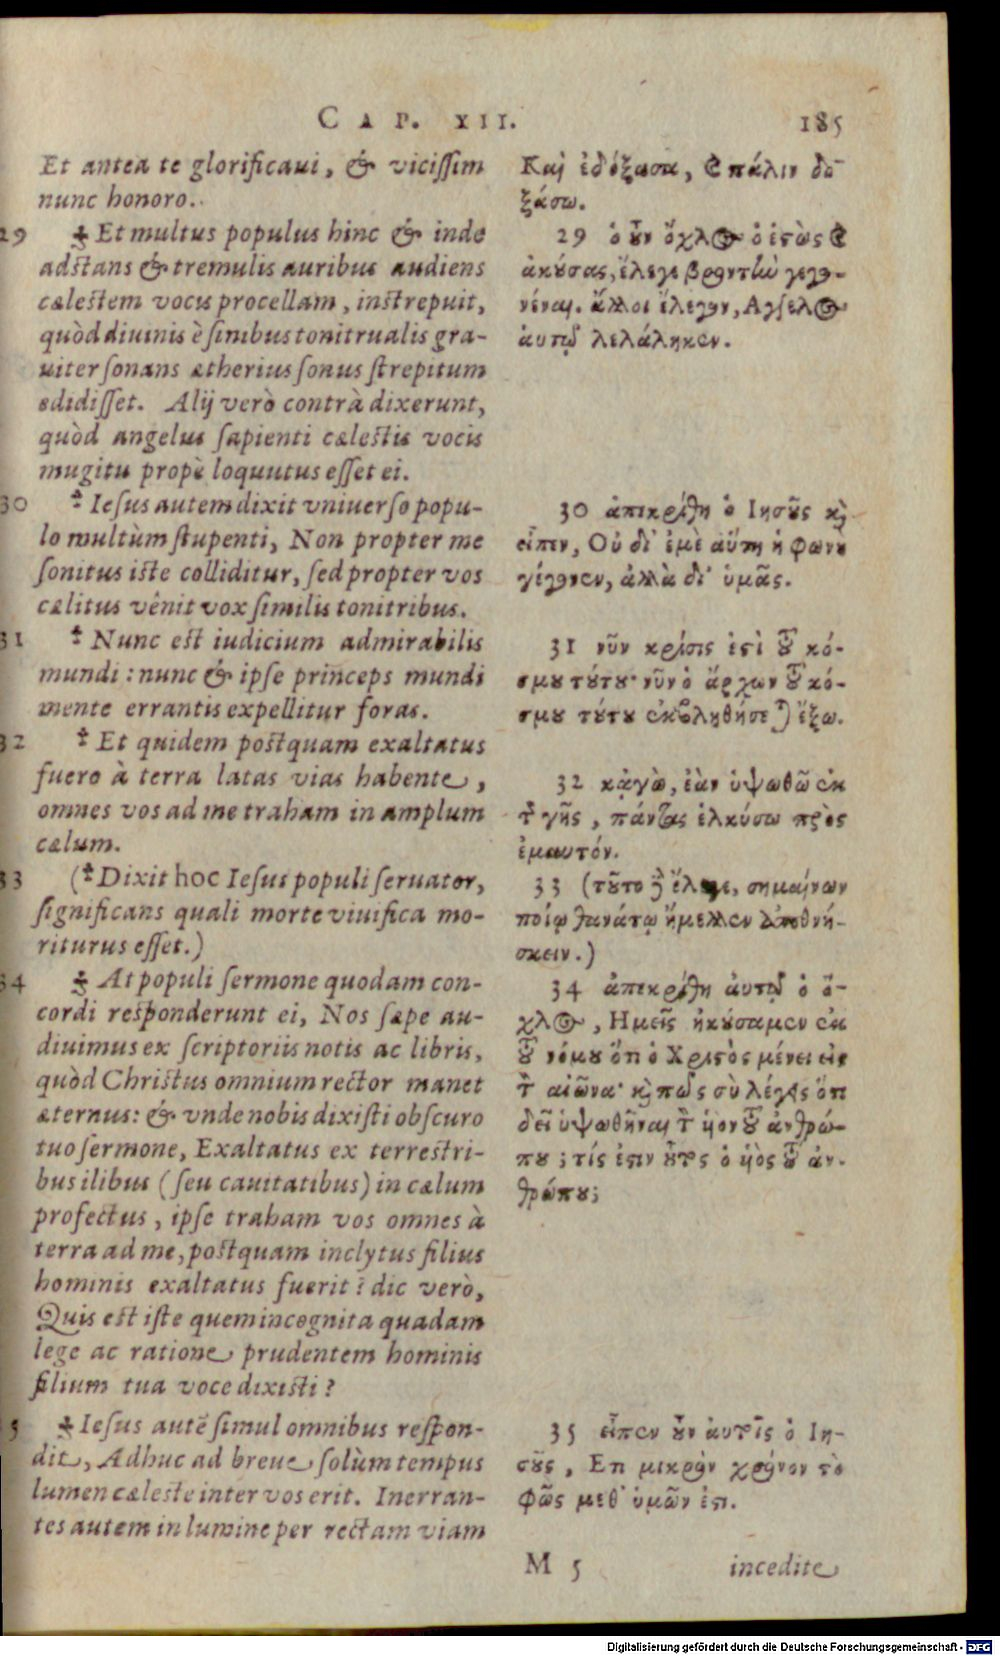 CAP. XII. 185
Et antea te glorificaui, & vicissim
nunc honoro.
29 Et multus populus hinc & inde
adstans & tremulis auribus audiens
cælestem vocis procellam, instrepuit,
quòd diuinis è sinibus tonitrualis gra-
uiter sonans ætherius sonus strepitum
edidisset. Alij verò contrà dixerunt,
quòd angelus sapienti cælestis vocis
mugitu propè loquutus esset ei.
30 Iesus autem dixit vniuerso popu-
lo multùm stupenti, Non propter me
sonitus iste colliditur, sed propter vos
cælitus vênit vox similis tonitribus.
31 Nunc est iudicium admirabilis
mundi: nunc & ipse princeps mundi
mente errantis expellitur foras.
32 Et quidem postquam exaltatus
fuero à terra latas vias habente,
omnes vos ad me traham in amplum
cælum.
33 (Dixit hoc Iesus populi seruator,
significans quali morte viuifica mo-
riturus esset.)
34 At populi sermone quodam con-
cordi responderunt ei, Nos sæpe au-
diuimus ex scriptoriis notis ac libris,
quòd Christus omnium rector manet
æternus: & vnde nobis dixisti obscuro
tuo sermone, Exaltatus ex terrestri-
bus ilibus (seu cauitatibus) in cælum
profectus, ipse traham vos omnes à
terra ad me, postquam inclytus filius
hominis exaltatus fuerit? dic verò,
Quis est iste quem incognita quadam
lege ac ratione prudentem hominis
filium tua voce dixisti?
5 Iesus autē simul omnibus respon-
dit, Adhuc ad breue solùm tempus
lumen cæleste inter vos erit. Inerran-
tes autem in lumine per rectam viam
Καὶ ἐδόξασα, καὶ πάλιν δο-
ξάσω.
29 ὁ οὖν ὄχλος ὁ ἑστὼς καὶ
ἀκούσας, ἔλεγε βροντὴν γεγο-
νέναι. ἄλλοι ἔλεγον, Αγγελος
αὐτῷ λελάληκεν.
30 ἀπεκρίθη ὁ Ιησοῦς καὶ
εἶπεν, Οὐ δι' ἐμὲ αὕτη ἡ φωνὴ
γέγονεν, ἀλλὰ δι' ὑμᾶς.
31 νῦν κρίσις ἐστὶ τοῦ κό-
σμου τούτου· νῦν ὁ ἄρχων τοῦ κό-
σμου τούτου ἐκβληθήσεται ἔξω.
32 κᾀγὼ, ἐὰν ὑψωθῶ ἐκ
τῆς γῆς, πάντας ἑλκύσω πρὸς
ἐμαυτόν.
33 (τοῦτο δὲ ἔλεγε, σημαίνων
ποίῳ θανάτῳ ἤμελλεν ἀποθνή-
σκειν.)
34 ἀπεκρίθη αὐτῷ ὁ ὄ-
χλος, Ημεῖς ἠκούσαμεν ἐκ
τοῦ νόμου ὅτι ὁ Χριστὸς μένει εἰς
τὸν αἰῶνα· καὶ πῶς σὺ λέγεις ὅτι
δεῖ ὑψωθῆναι τὸν υἱὸν τοῦ ἀνθρώ-
που; τίς ἐστιν οὗτος ὁ υἱὸς τοῦ ἀν-
θρώπου;
35 εἶπεν οὖν αὐτοῖς ὁ Ιη-
σοῦς, Ετι μικρὸν χρόνον τὸ
φῶς μεθ' ὑμῶν ἐστι.
M 5 incedite
Digitalisierung gefördert durch die Deutsche Forschungsgemeinschaft - DFG